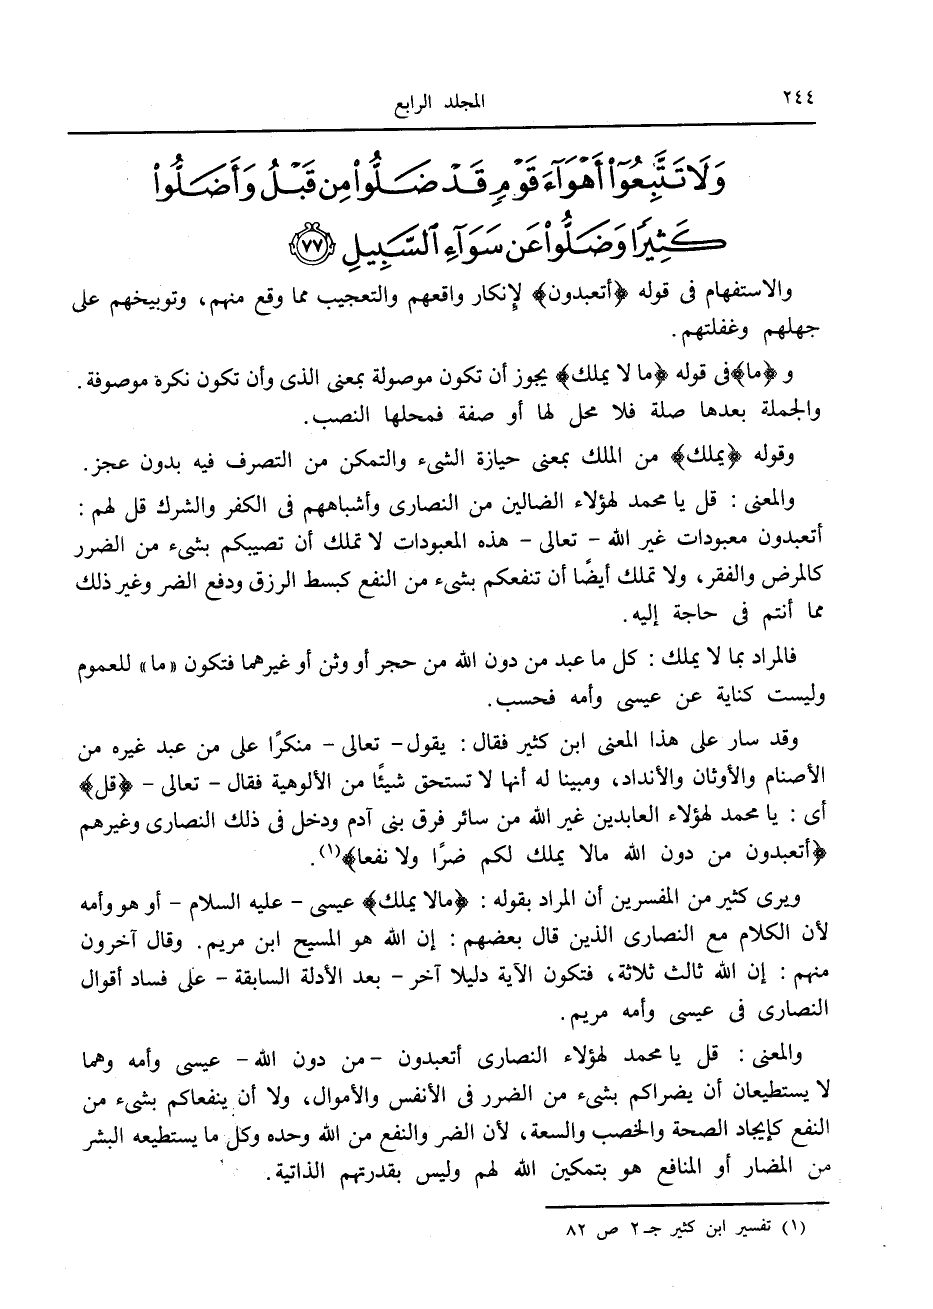 ٢٤٤
المجلد الرابع
وَلَا تَتَّبِعُوٓا۟ أَهْوَآءَ قَوْمٍ قَدْ ضَلُّوا۟ مِن قَبْلُ وَأَضَلُّوا۟
كَثِيرًا وَضَلُّوا۟ عَن سَوَآءِ ٱلسَّبِيلِ ﴿٧٧﴾
والاستفهام فى قوله ﴿أتعبدون﴾ لإنكار واقعهم والتعجيب مما وقع منهم، وتوبيخهم على
جهلهم وغفلتهم.
و ﴿ما﴾ فى قوله ﴿ما لا يملك﴾ يجوز أن تكون موصولة بمعنى الذى وأن تكون نكرة موصوفة.
والجملة بعدها صلة فلا محل لها أو صفة فمحلها النصب.
وقوله ﴿يملك﴾ من الملك بمعنى حيازة الشىء والتمكن من التصرف فيه بدون عجز.
والمعنى : قل يا محمد لهؤلاء الضالين من النصارى وأشباههم فى الكفر والشرك قل لهم :
أتعبدون معبودات غير الله - تعالى - هذه المعبودات لا تملك أن تصيبكم بشىء من الضرر
كالمرض والفقر، ولا تملك أيضًا أن تنفعكم بشىء من النفع كبسط الرزق ودفع الضر وغير ذلك
مما أنتم فى حاجة إليه.
فالمراد بما لا يملك : كل ما عبد من دون الله من حجر أو وثن أو غيرهما فتكون «ما» للعموم
وليست كناية عن عيسى وأمه فحسب.
وقد سار على هذا المعنى ابن كثير فقال : يقول - تعالى - منكرًا على من عبد غيره من
الأصنام والأوثان والأنداد، ومبينا له أنها لا تستحق شيئًا من الألوهية فقال - تعالى - ﴿قل﴾
أى : يا محمد لهؤلاء العابدين غير الله من سائر فرق بنى آدم ودخل فى ذلك النصارى وغيرهم
﴿أتعبدون من دون الله مالا يملك لكم ضرًّا ولا نفعا﴾(١).
ويرى كثير من المفسرين أن المراد بقوله : ﴿مالا يملك﴾ عيسى - عليه السلام - أو هو وأمه
لأن الكلام مع النصارى الذين قال بعضهم : إن الله هو المسيح ابن مريم. وقال آخرون
منهم : إن الله ثالث ثلاثة، فتكون الآية دليلا آخر - بعد الأدلة السابقة - على فساد أقوال
النصارى فى عيسى وأمه مريم.
والمعنى : قل يا محمد لهؤلاء النصارى أتعبدون - من دون الله - عيسى وأمه وهما
لا يستطيعان أن يضراكم بشىء من الضرر فى الأنفس والأموال، ولا أن ينفعاكم بشىء من
النفع كإيجاد الصحة والخصب والسعة، لأن الضر والنفع من الله وحده وكل ما يستطيعه البشر
من المضار أو المنافع هو بتمكين الله لهم وليس بقدرتهم الذاتية.
(١) تفسير ابن كثير جـ٢ ص ٨٢